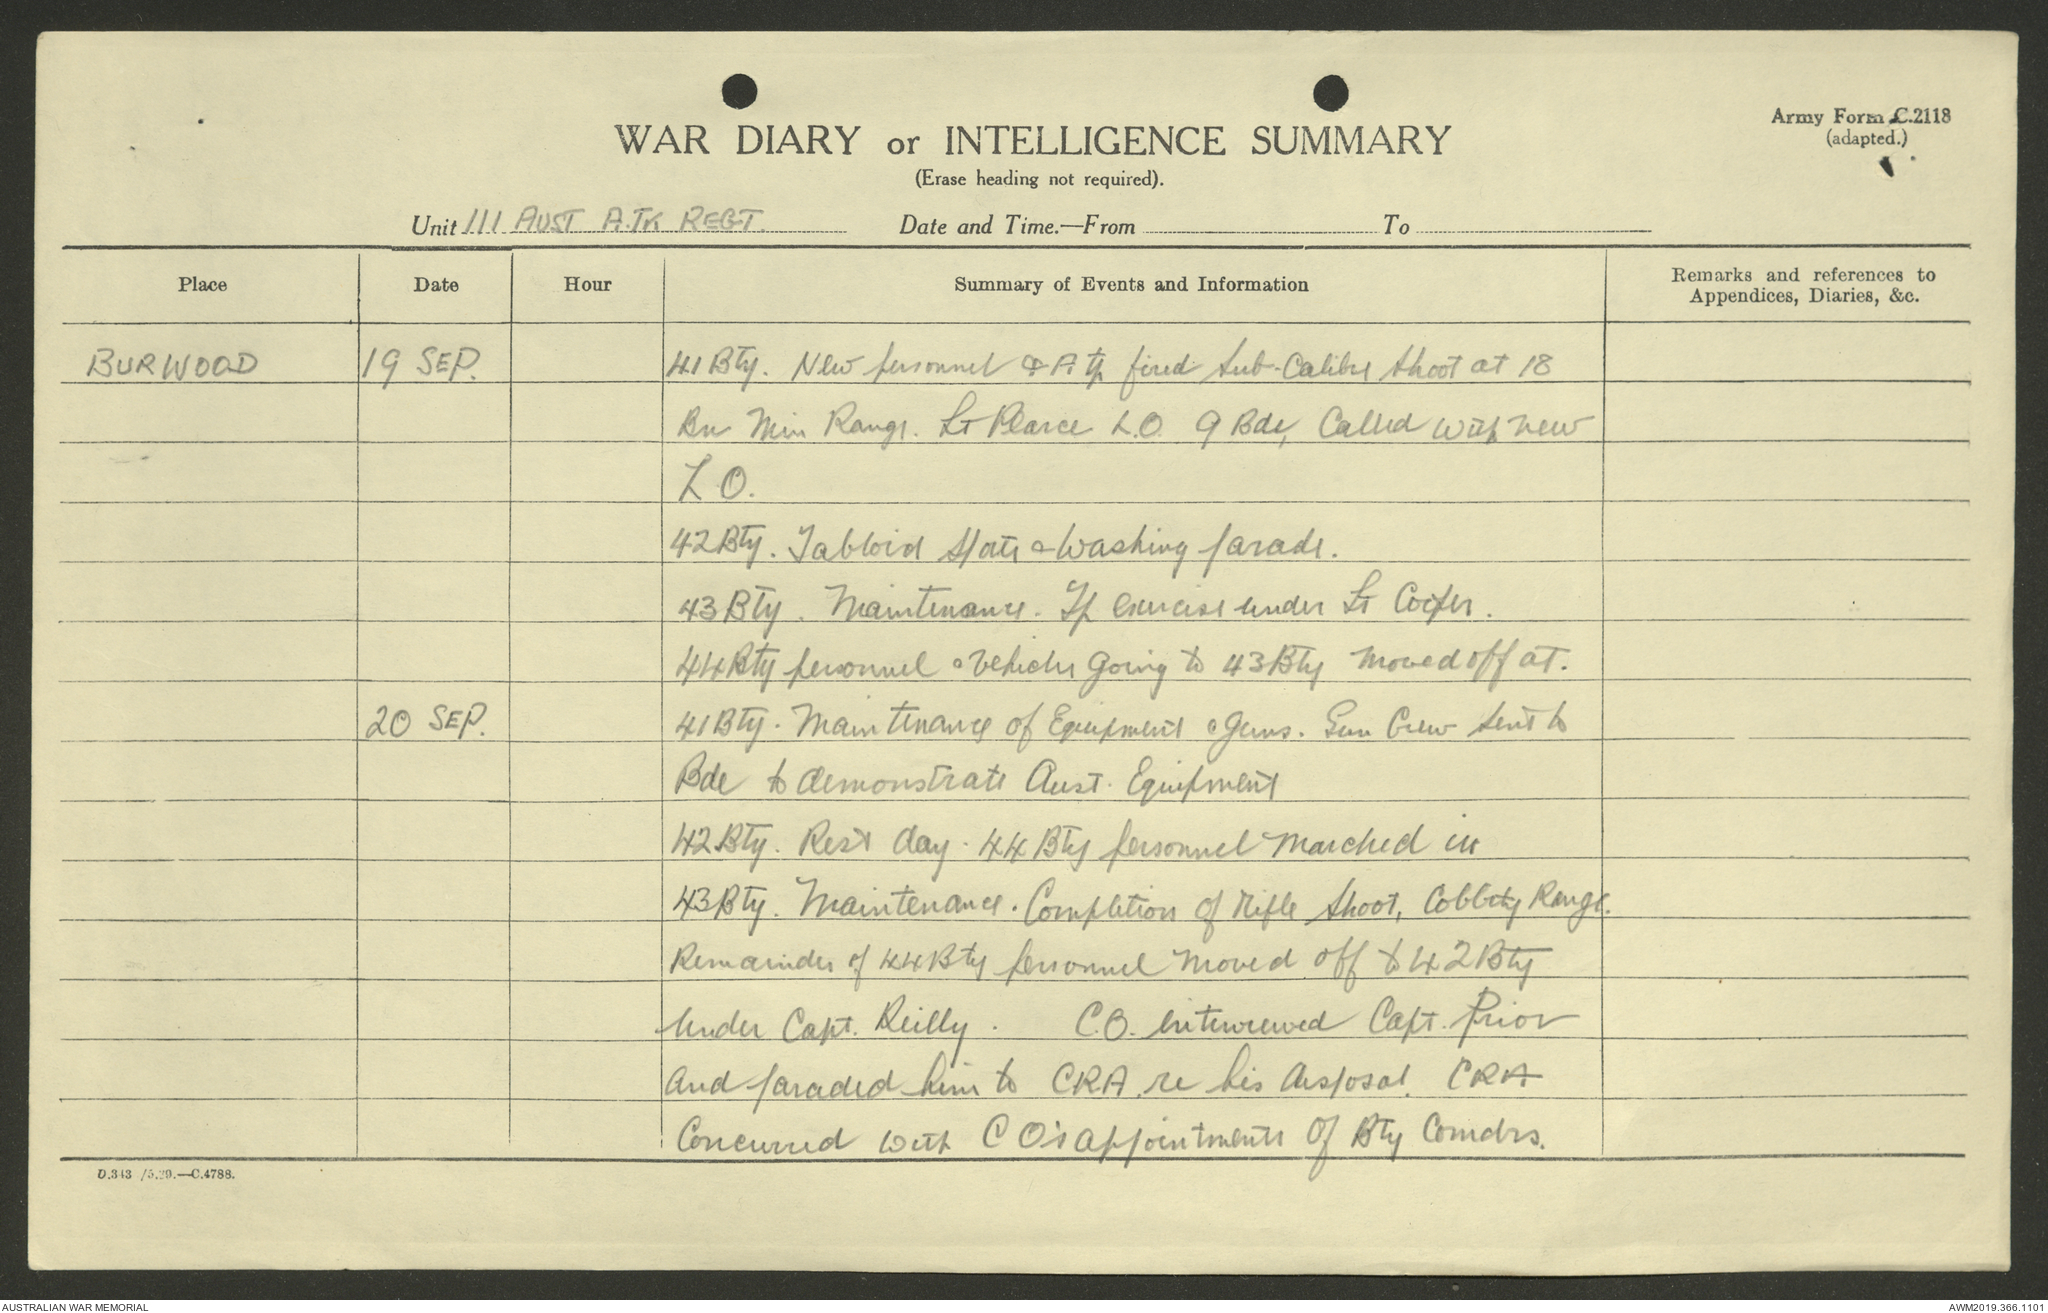 Army Form C.2118
(adapted.)
WAR DIARY or INTELLIGENCE SUMMARY
(Erase heading not required).
Unit 111 AUST A.TK REGT. Date and Time.—From To
Place Date Hour Summary of Events and Information Remarks and references to
Appendices, Diaries, &c.
BURWOOD 19 SEP. 41 Bty. New personnel & A tp fired Sub-Calibre Shoot at 18
Bn Min Range. Lt Pearce L.O. 9 Bde, Called with new
L O.
42 Bty. Tabloid Sports & Washing parade.
43 Bty. Maintenance. Tp exercise under Lt
44 Bty personnel & Vehicles going to 43 Bty moved off at.
20 SEP. 41 Bty. Maintenance of Equipment & Guns. Gun Crew sent to
Bde to demonstrate Aust. Equipment
42 Bty. Rest day. 44 Bty personnel marched in
43 Bty. Maintenance. Completion of rifle shoot, Cobbity Range.
Remainder of 44 Bty personnel moved off to 42 Bty
under Capt. Reilly. C.O. interviewed Capt. Prior
and paraded him to CRA. re his disposal. CRA
Concurred with C O's appointments of Bty Comdrs.
D.343 /5.39.—C.4788.
AUSTRALIAN WAR MEMORIAL AWM2019.366.1101